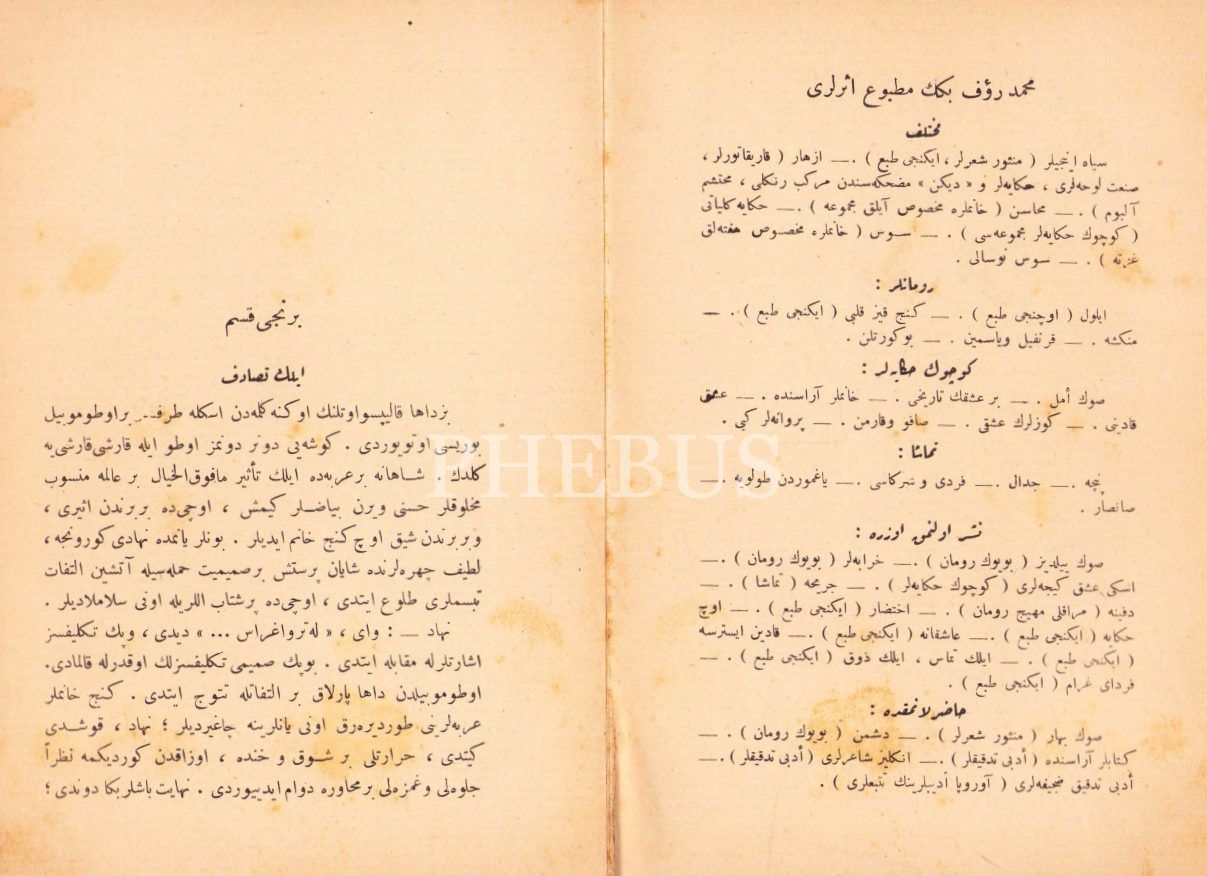 محمد رؤف بكك مطبوع اثرلرى
مختلف
سياه اينجيلر ( منثور شعرلر ، ايكنجى طبع ) . — ازهار ( قاريقاتورلر ،
صنعت لوحه‌لرى ، حكايه‌لر و « ديكن » مضحكه‌سندن مركب رنكلى ، محتشم
آلبوم ) . — محاسن ( خانملره مخصوص آيلق مجموعه ) . — حكايه كلياتى
( كوچوك حكايه‌لر مجموعه‌سى ) . — سوس ( خانملره مخصوص هفته‌لق
غزته ) . — سوس نوسالى .
رومانلر :
ايلول ( اوچنجى طبع ) . — كنج قيز قلبى ( ايكنجى طبع ) . —
منكشه . — قرنفيل وياسمين . — بوكورتلن .
كوچوك حكايه‌لر :
صوك أمل . — بر عشقك تاريخى . — خانملر آراسنده . — عشق
قادينى . — كوزلرك عشقى . — صافو وقارمن . — پروانه‌لر كبى .
تماشا :
پنچه . — جدال . — فردى وشركاسى . — ياغموردن طولويه . —
صانصار .
نشر اولنمق اوزره :
صوك ييلديز ( بويوك رومان ) . — خرابه‌لر ( بويوك رومان ) . —
اسكى عشق كيجه‌لرى ( كوچوك حكايه‌لر ) . — جريحه ( تماشا ) . —
دفينه ( مراقلى مهيج رومان ) . — احتضار ( ايكنجى طبع ) . — اوچ
حكايه ( ايكنجى طبع ) . — عاشقانه ( ايكنجى طبع ) . — قادين ايسترسه
( ايكنجى طبع ) . — ايلك تماس ، ايلك ذوق ( ايكنجى طبع ) . —
فرداى غرام ( ايكنجى طبع ) .
حاضرلانمقده :
صوك بهار ( منثور شعرلر ) . — دشمن ( بويوك رومان ) . —
كتابلر آراسنده ( أدبى تدقيقلر ) . — انكليز شاعرلرى ( أدبى تدقيقلر ) . —
أدبى تدقيق صحيفه‌لرى ( آوروپا أديبلرينك تتبعلرى ) .
برنجى قسم
ايلك تصادف
بزداها قاليپسواوتلنك اوكنه كلمه‌دن اسكله طرفـ بر اوطوموبيل
بوريسى اوتويوردى . كوشه‌يى دونر دونمز اوطو ايله قارشى قارشى‌يه
كلدك . شاهانه برعربه‌ده ايلك تأثير مافوق‌الخيال بر عالمه منسوب
مخلوقلر حسنى ويرن بياضلر كيمش ، اوچى‌ده بربرندن اثيرى ،
وبربرندن شيق اوچ كنج خانم ايديلر . بونلر يانمده نهادى كورونجه ،
لطيف چهره‌لرنده شايان پرستش برصميميت حمله‌سيله آتشين التفات
تبسملرى طلوع ايتدى ، اوچى‌ده پرشتاب اللريله اونى سلاملاديلر .
نهاد — : واى ، « له‌تروا‌غراس ... » ديدى ، وپك تكليفسز
اشارتلرله مقابله ايتدى . بوپك صميمى تكليفسزلك اوقدرله قالمادى .
اوطوموبيلدن داها پارلاق بر التفاتله تتوج ايتدى . كنج خانملر
عربه‌لرينى طورديره‌رق اونى يانلرينه چاغيرديلر ؛ نهاد ، قوشدى
كيتدى ، حرارتلى بر شوق و خنده ، اوزاقدن كورديكمه نظراً
جلوه‌لى وغمزه‌لى برمحاوره دوام ايدييوردى . نهايت باشلر بكا دوندى ؛
PHEBUS